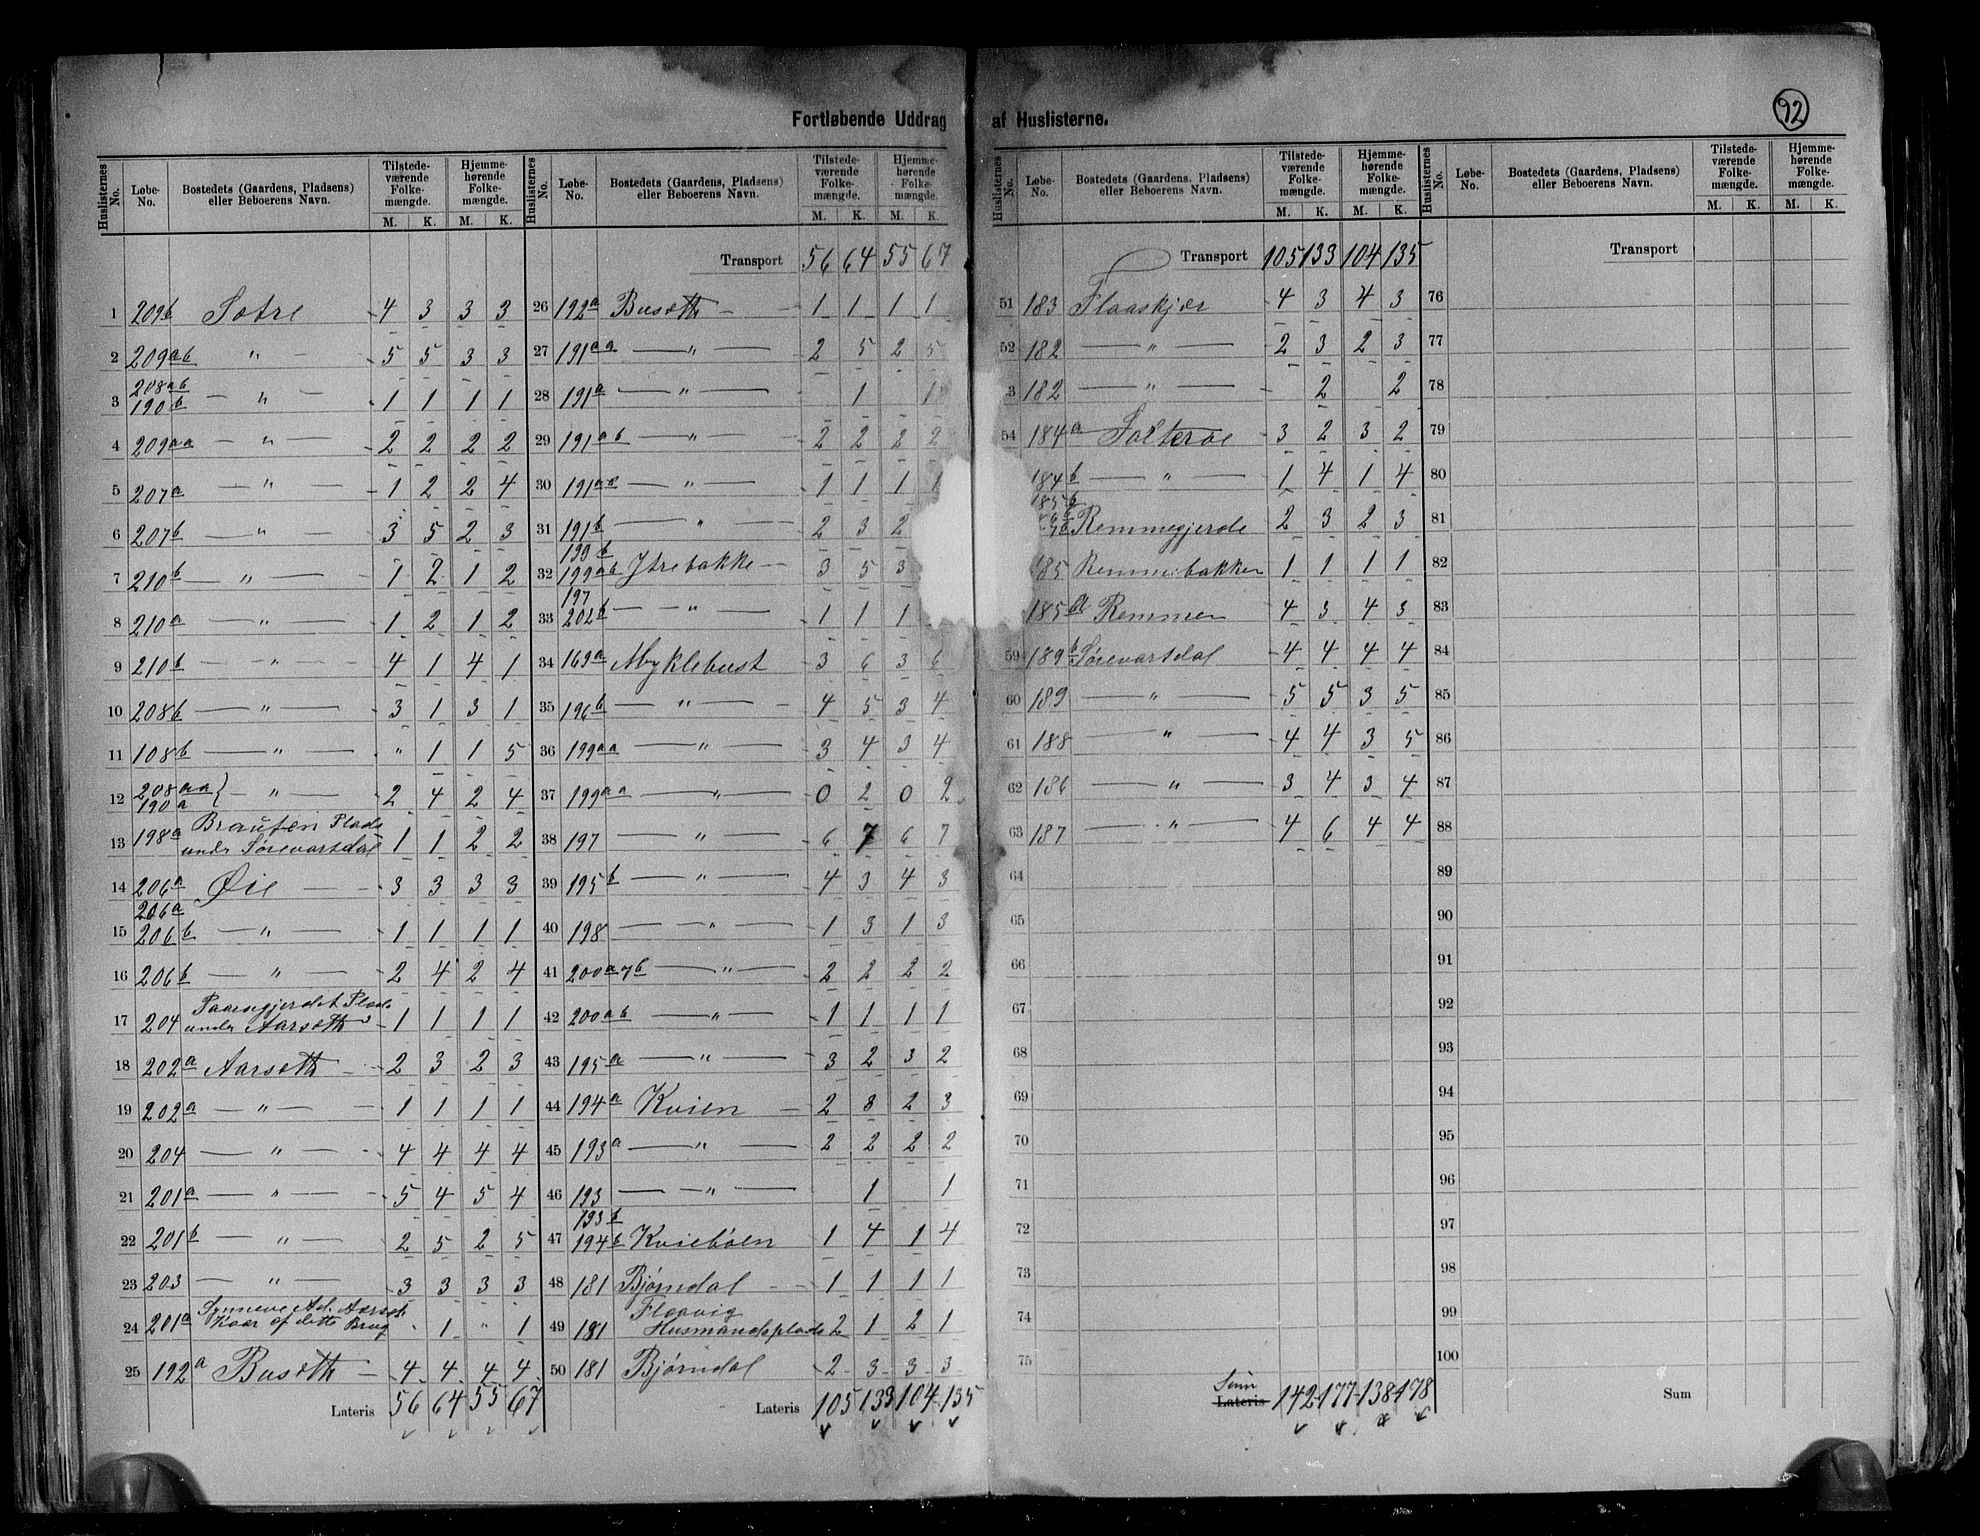 92
Fortløbende Uddrag af Huslisterne.
Huslisternes No. Løbe-No. Bostedets (Gaardens, Pladsens) eller Beboerens Navn. Tilstedeværende Folkemængde. M. K. Hjemmehørende Folkemængde. M. K.
1 209b Sætre 4 3 3 3
2 209ab " 5 5 3 3
3 208ab 190b " 1 1 1 1
4 209aa " 2 2 2 2
5 207a " 1 2 2 4
6 207b " 3 5 2 3
7 210b " 1 2 1 2
8 210a " 1 2 1 2
9 210b " 4 1 4 1
10 208b " 3 1 3 1
11 108b " " 1 1 5
12 208aa 190a } " 2 4 2 4
13 198a Plads under Sørevartsdal 1 1 2 2
14 206a Øie 3 3 3 3
15 206a 206b " 1 1 1 1
16 206b " 2 4 2 4
17 204 Plads under Aarseth 1 1 1 1
18 202a Aarseth 2 3 2 3
19 202a " 1 1 1 1
20 204 " 4 4 4 4
21 201a " 5 4 5 4
22 201b " 2 5 2 5
23 203 " 3 3 3 3
24 201a Synneve Ad. Aarset Kaar af dette Brug " 1 " 1
25 192a Buseth 4 4 4 4
Lateris 56 64 55 67
Huslisternes No. Løbe-No. Bostedets (Gaardens, Pladsens) eller Beboerens Navn. Tilstedeværende Folkemængde. M. K. Hjemmehørende Folkemængde. M. K.
Transport 56 64 55 67
26 192a Buseth 1 1 1 1
27 191aa " 2 5 2 5
28 191a " 1 1
29 191ab " 2 2 2 2
30 191ab " 1 1 1 1
31 191b " 2 3 2
32 199b 199ab Ytrebakke 3 5 3
33 197 202b " 1 1 1
34 169a Myklebust 3 6 3 6
35 196b " 4 5 3 4
36 199aa " 3 4 3 4
37 199aa " 0 2 0 2
38 197 " 6 7 6 7
39 195b " 4 3 4 3
40 198 " 1 3 1 3
41 200a7b " 2 2 2 2
42 200ab " 1 1 1 1
43 195a " 3 2 3 2
44 194a Kvien 2 8 2 3
45 193a " 2 2 2 2
46 193 " 1 1
47 193b 194b Kviebøen 1 4 1 4
48 181 Bjørndal 1 1 1 1
49 181 Flaavig Husmandsplads 2 1 2 1
50 181 Bjørndal 2 3 3 3
Lateris 105 133 104 135
Huslisternes No. Løbe-No. Bostedets (Gaardens, Pladsens) eller Beboerens Navn. Tilstedeværende Folkemængde. M. K. Hjemmehørende Folkemængde. M. K.
Transport 105 133 104 135
51 183 Flaaskjær 4 3 4 3
52 182 " 2 3 2 3
3 182 " 2 2
54 184a Solterøe 3 2 3 2
184b " 1 4 1 4
185b Remmegjerde 2 3 2 3
185 Remmebakken 1 1 1 1
185a Remmen 4 3 4 3
59 189b Sørevartsdal 4 4 4 4
60 189 " 5 5 3 5
61 188 " 4 4 3 5
62 186 " 3 4 3 4
63 187 " 4 6 4 4
64
65
66
67
68
69
70
71
72
73
74
75
Sum Lateris 142 177 138 178
Huslisternes No. Løbe-No. Bostedets (Gaardens, Pladsens) eller Beboerens Navn. Tilstedeværende Folkemængde. M. K. Hjemmehørende Folkemængde. M. K.
Transport
76
77
78
79
80
81
82
83
84
85
86
87
88
89
90
91
92
93
94
95
96
97
98
99
100
Sum